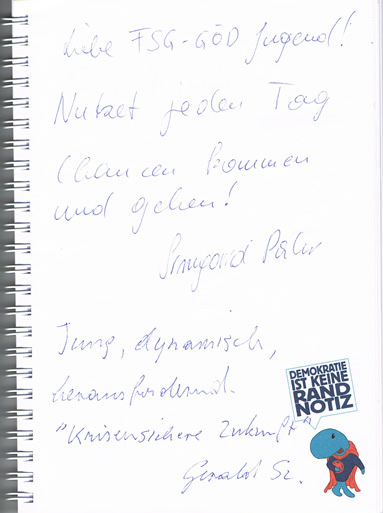 Liebe FSG-GÖD Jugend!
Nutzet jeden Tag
Chancen kommen
und gehen!
Irmgard
Jung, dynamisch,
herausfordernd.
"Krisensichere Zukunft"
Gerald Sz.
DEMOKRATIE
IST KEINE
RAND
NOTIZ